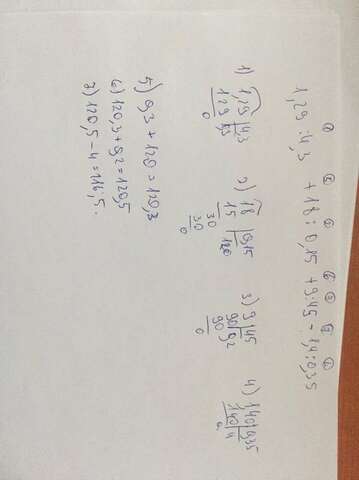 1,29 : 4,3 + 18 : 0,15 + 9 : 45 - 1,4 : 0,35
1) 1,29 | 4,3 2) 18 | 0,15 3) 9 | 45 4) 140 | 0,35
129 | 0,3 15 | 120 90 | 0,2 140 | 4
0 30 90 0
30 0
0
5) 0,3 + 120 = 120,3
6) 120,3 + 0,2 = 120,5
7) 120,5 - 4 = 116,5.